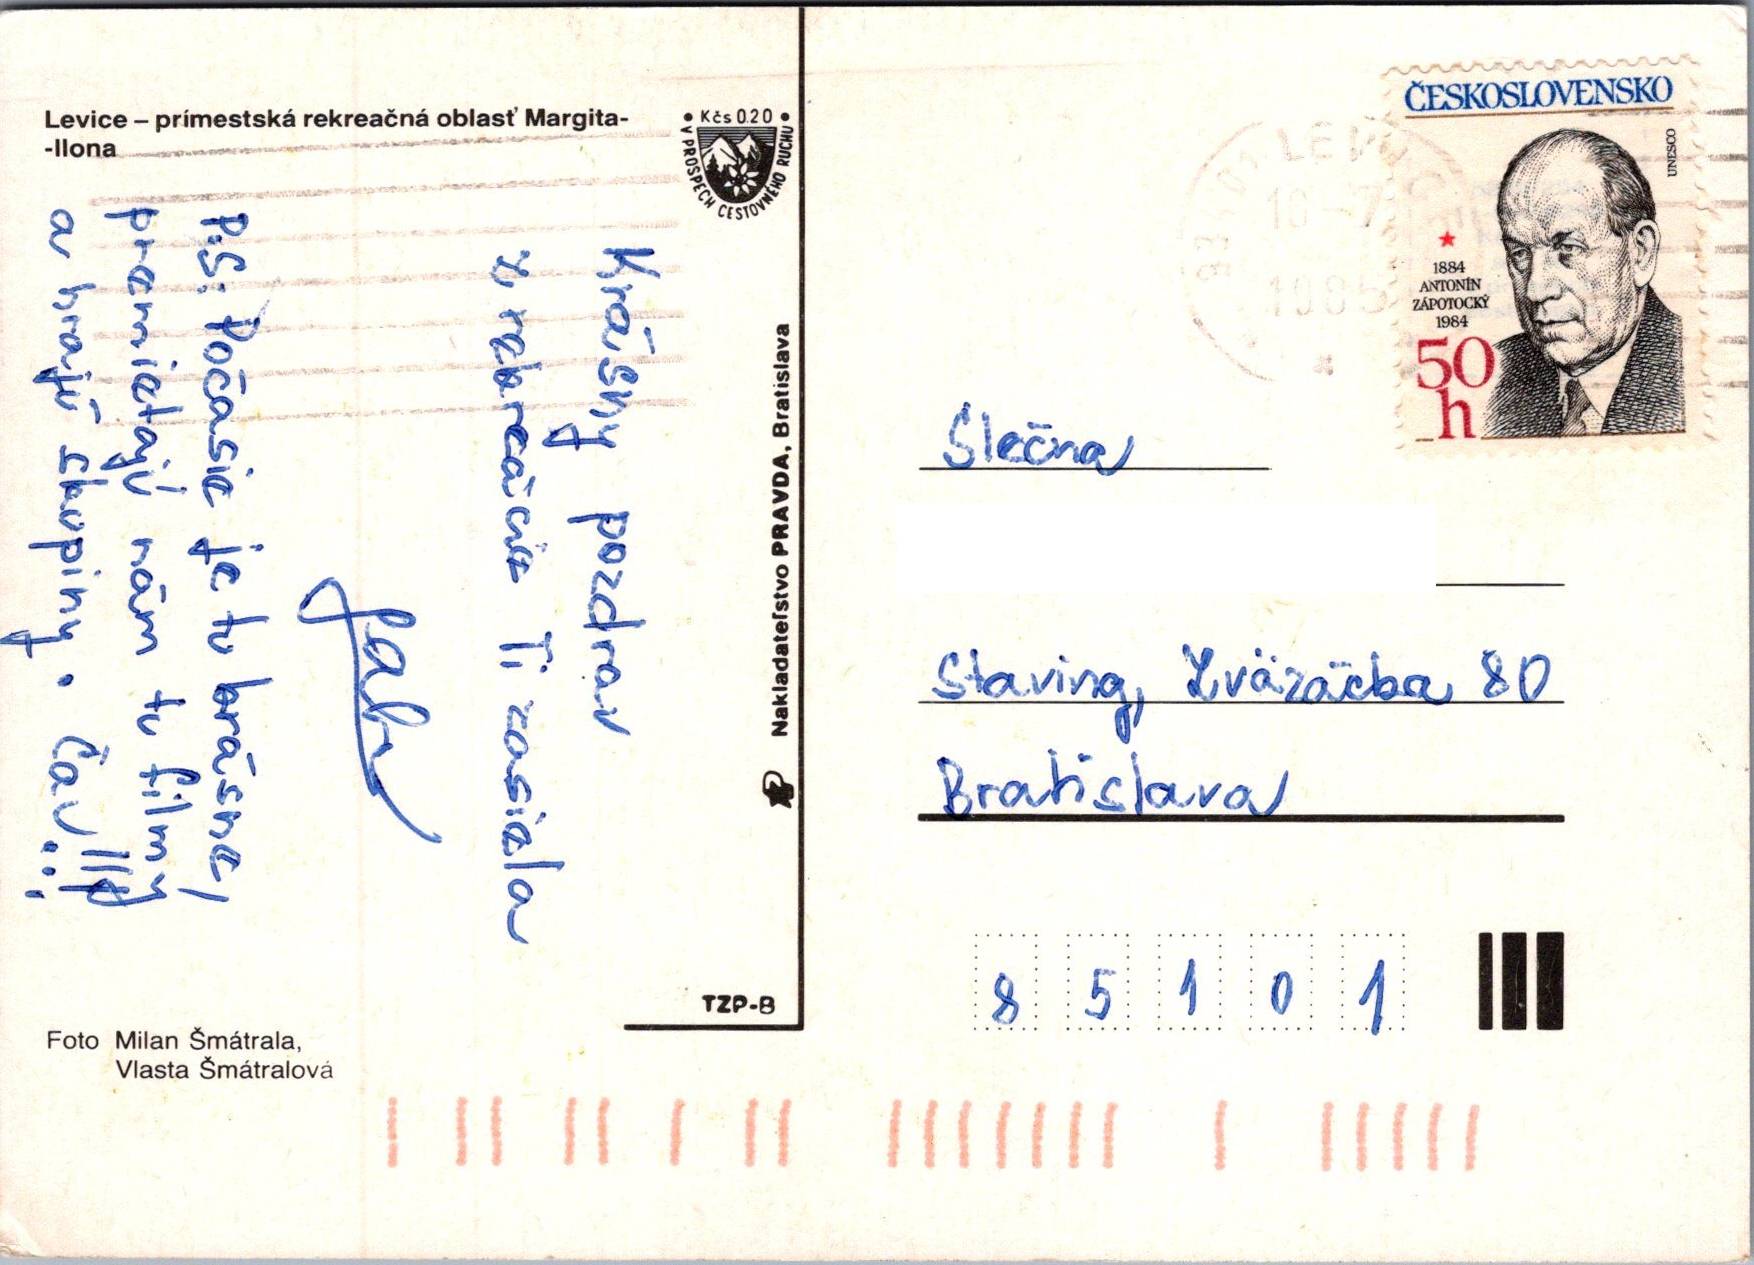 Levice – prímestská rekreačná oblasť Margita-
-Ilona
• Kčs 0.20 •
V PROSPECH CESTOVNÉHO RUCHU
Krásny pozdrav
z rekreácie Ti zasiela
Gaba
P.S: Počasie je tu krásne,
premietajú nám tu filmy
a hrajú skupiny. Čau!!!
Foto Milan Šmátrala,
Vlasta Šmátralová
Nakladateľstvo PRAVDA, Bratislava
TZP-B
ČESKOSLOVENSKO
UNESCO
1884
ANTONÍN
ZÁPOTOCKÝ
1984
50
h
LEVICE
10 -7
1985
Slečna
Staving, Zväzácka 80
Bratislava
85101